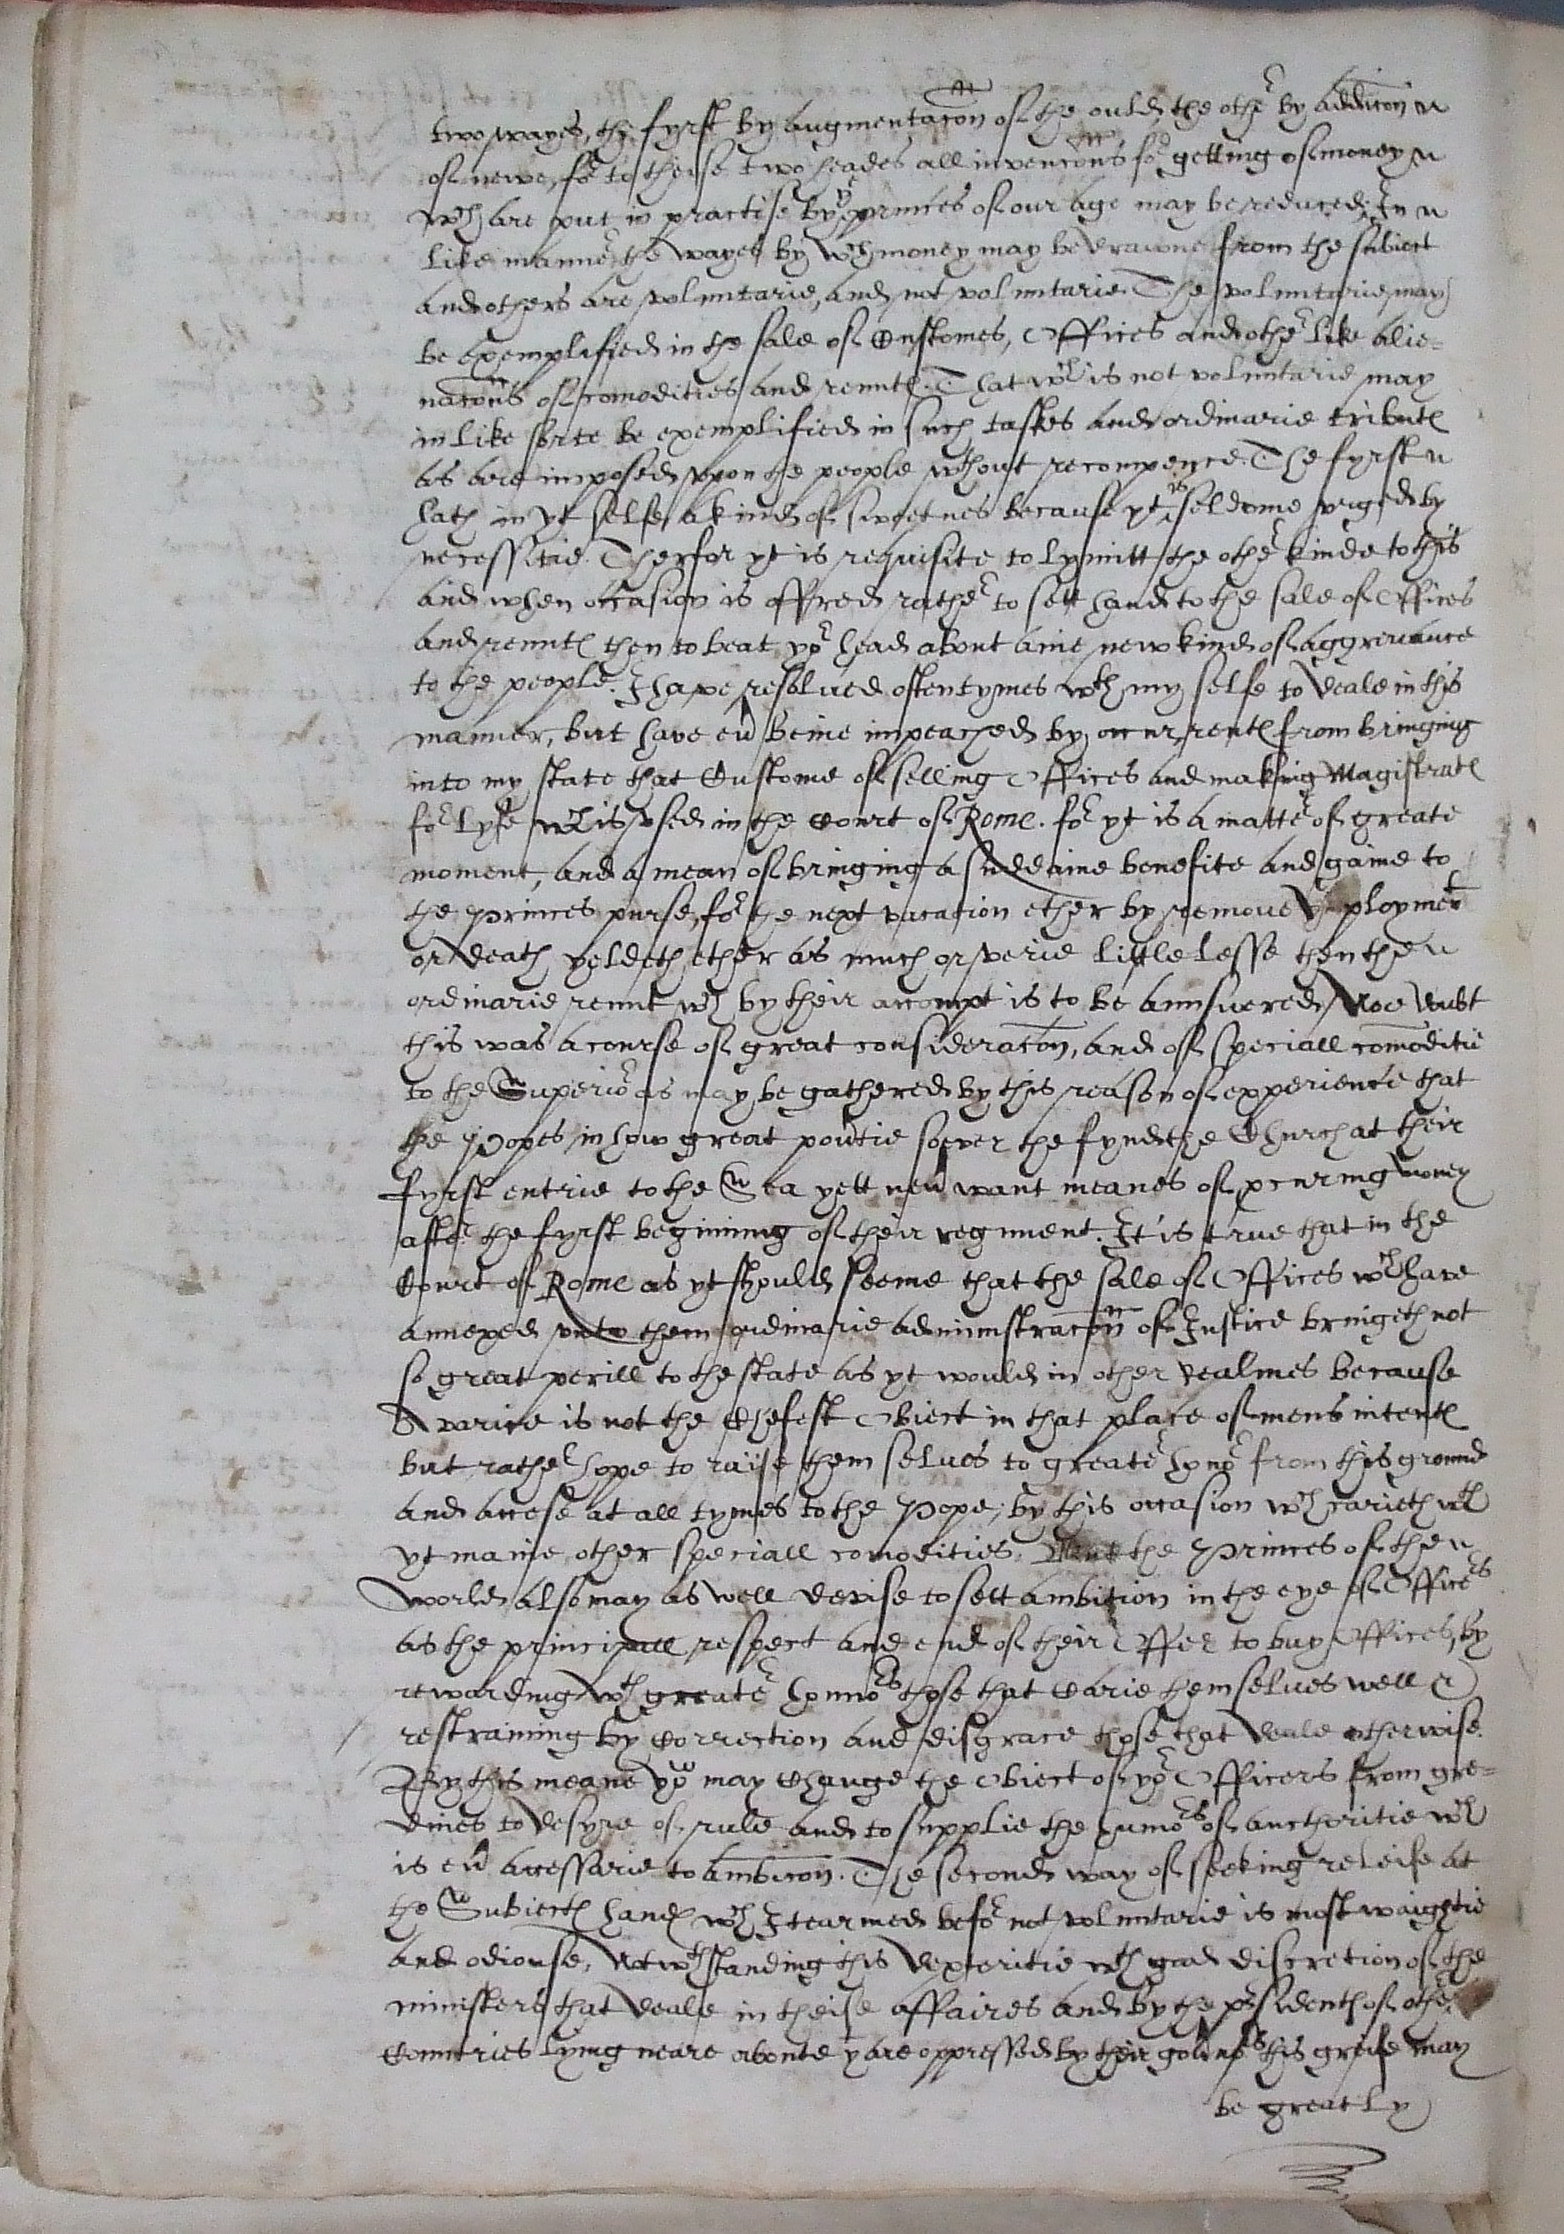 two wayes, the fyrst by augmentacon of the ould, the other by addicon
of newe, for to theise two heades all invencons for getting of money
wch are put in practise by ye princes of our age may be reduced. In
like manner the wayes by wch money may be drawne from the subiect
and others are voluntarie, and not voluntarie. The voluntarie may
be exemplified in the sale of Customes, Offices and other like alie=
nacons of comodities and rentes. That wch is not voluntarie may
in like sorte be exemplified in such taskes and ordinarie tributes
as are imposed vpon the people wthout recompence. The fyrst
hath in yt selfe a kind of sweetnes because yt is seldome vrged by
necessitie. Therfor yt is requisite to lymitt the other kinde to this
and when occasion is offred rather to sett hand to the sale of Offices
and rentes then to beat yor head about anie new kind of aggrevance
to the people. I have resolued oftentymes wth my selfe to deale in this
manner, but have eu beine impeached by occurrentes from bringing
into my state that Custome of selling Offices and making Magistrates
for lyfe wch is vsed in the Court of Rome. for yt is a matter of greate
moment, and a mean of bringing a suddaine benefite and gaine to
the Princes purse, for the next vacation ether by remoue ymployment
or death yeldeth ether as much or verie little lesse then the
ordinarie rennt wch by their accompt is to be annswered. Noe doubt
this was a course of great consideracon, and of speciall comoditie
to the Superior as may be gathered by this reason of experience that
the Popes in how great poutie soever the fynd the Church at their
fyrst entrie to the Sea yett neu want meanes of pcuring money
after the fyrst begining of their regiment. It is true that in the
Court of Rome as yt should seeme that the sale of Offices wch have
annexed vnto them ordinarie administracon of Iustice bringeth not
so great perill to the state as yt would in other realmes because
Avarice is not the Chefest Obiect in that place of mens intentes
but rather hope to raise them selues to greater honor from this ground
and accese at all tymes to the Pope, by this occasion wch carieth wth
yt manie other speciall comodities. But the Princes of the
world also may as well devise to sett ambition in the eye of Officers
as the principall respect and end of their Offer to buy Offices, by
rewarding wth greater honnors those that Carie themselues well &
restraining by Correction and disgrace those that deale otherwise.
By this meane you may Change the Obiect of yor Officers from gre=
dines to desyre of rule and to supplie the humors of aucthoritie wch
is eu accessarie to ambicon. The second way of seeking releife at
the Subiectes handes wch I tearmed before not voluntarie is most waightie
and odiouse, Notwthstanding this dexteritie wth good discretion of the
ministers that deale in theise affaires and by the psidentes of other
Countries lying neare aboute yt are oppressed by their gounors this greife may
be greatly